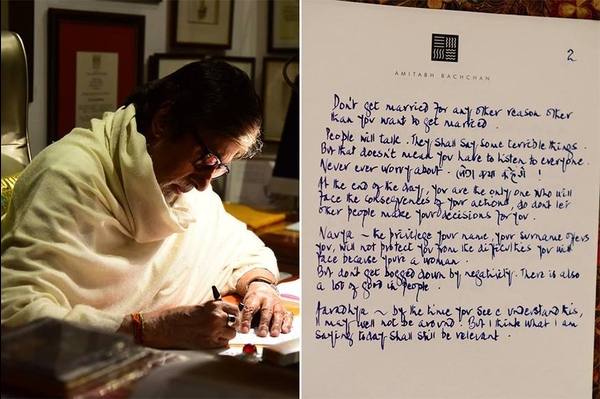 2
AMITABH BACHCHAN
Don't get married for any other reason other
than you want to get married.
People will talk. They shall say some terrible things.
But that doesn't mean you have to listen to everyone.
Never ever worry about - लोग क्या कहेंगे !
At the end of the day, you are the only one who will
face the consequences of your actions, so don't let
other people make your decisions for you.
Navya ~ the privilege your name, your surname offers
you, will not protect you from the difficulties you will
face because you're a woman.
But don't get bogged down by negativity. There is also
a lot of good in people.
Aaradhya ~ by the time you see & understand this,
I may well not be around. But I think what I am
saying today shall still be relevant.